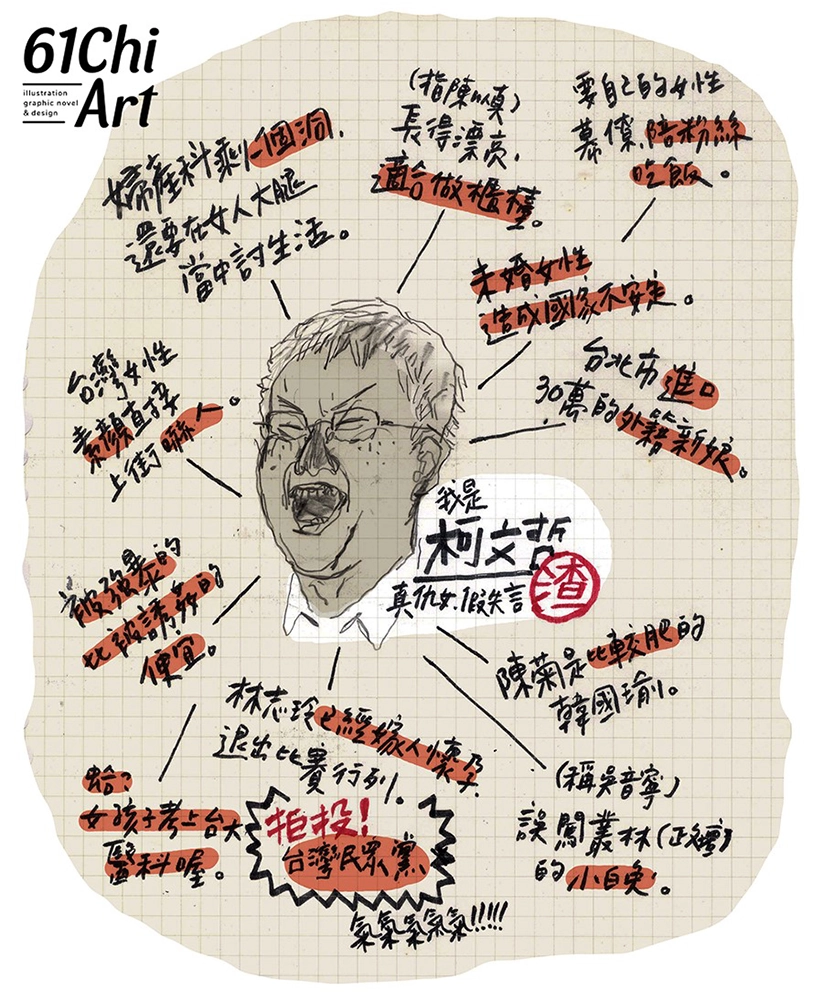 61Chi
Art
illustration
graphic novel
& design
婦產科剩一個洞,
還要在女人大腿
當中討生活。
(指陳以真)
長得漂亮,
適合做櫃檯。
要自己的女性
幕僚,陪粉絲
吃飯。
未婚女性
造成國家不安定。
台北市進口
30萬的外籍新娘。
台灣女性
素顏直接
上街嚇人。
我是
柯文哲
真仇女,假失言
渣
被強暴的
比被誘姦的
便宜。
陳菊是比較肥的
韓國瑜。
林志玲已經嫁人懷孕
退出比賽行列。
(稱吳音寧)
誤闖叢林(政壇)
的小白兔。
蛤?
女孩子考上台大
醫科喔。
拒投!
台灣民眾黨
氣氣氣氣氣!!!!!